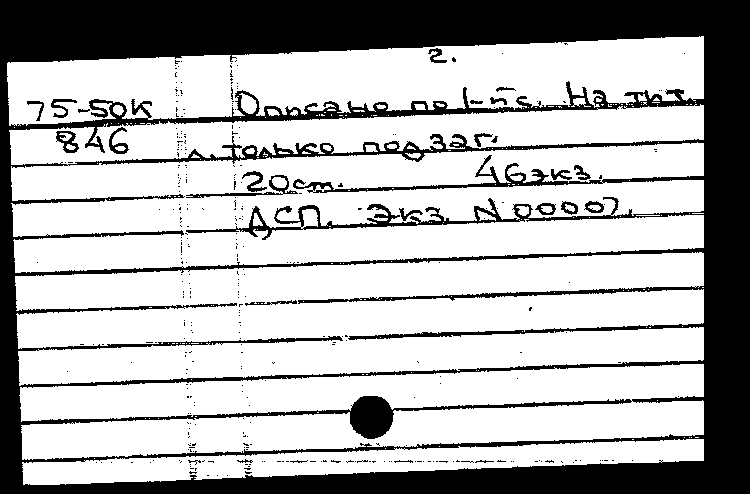 2.
75-50К Описано по 1-й с. На тит.
846 л. только подзаг.
20см. 46экз.
ДСП. Экз. N 00007.